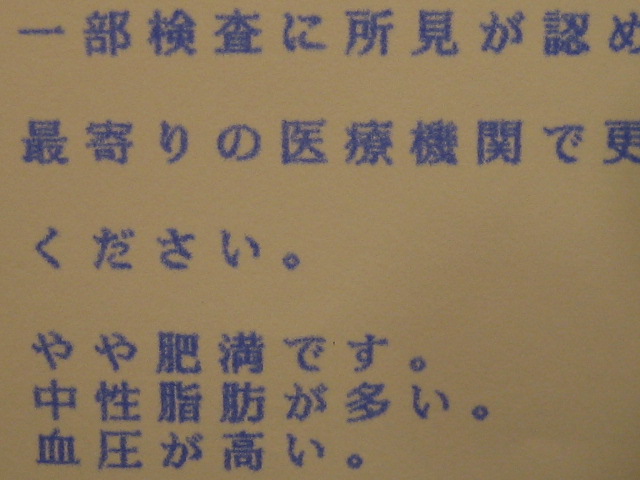 一部検査に所見が認め
最寄りの医療機関で更
ください。
やや肥満です。
中性脂肪が多い。
血圧が高い。